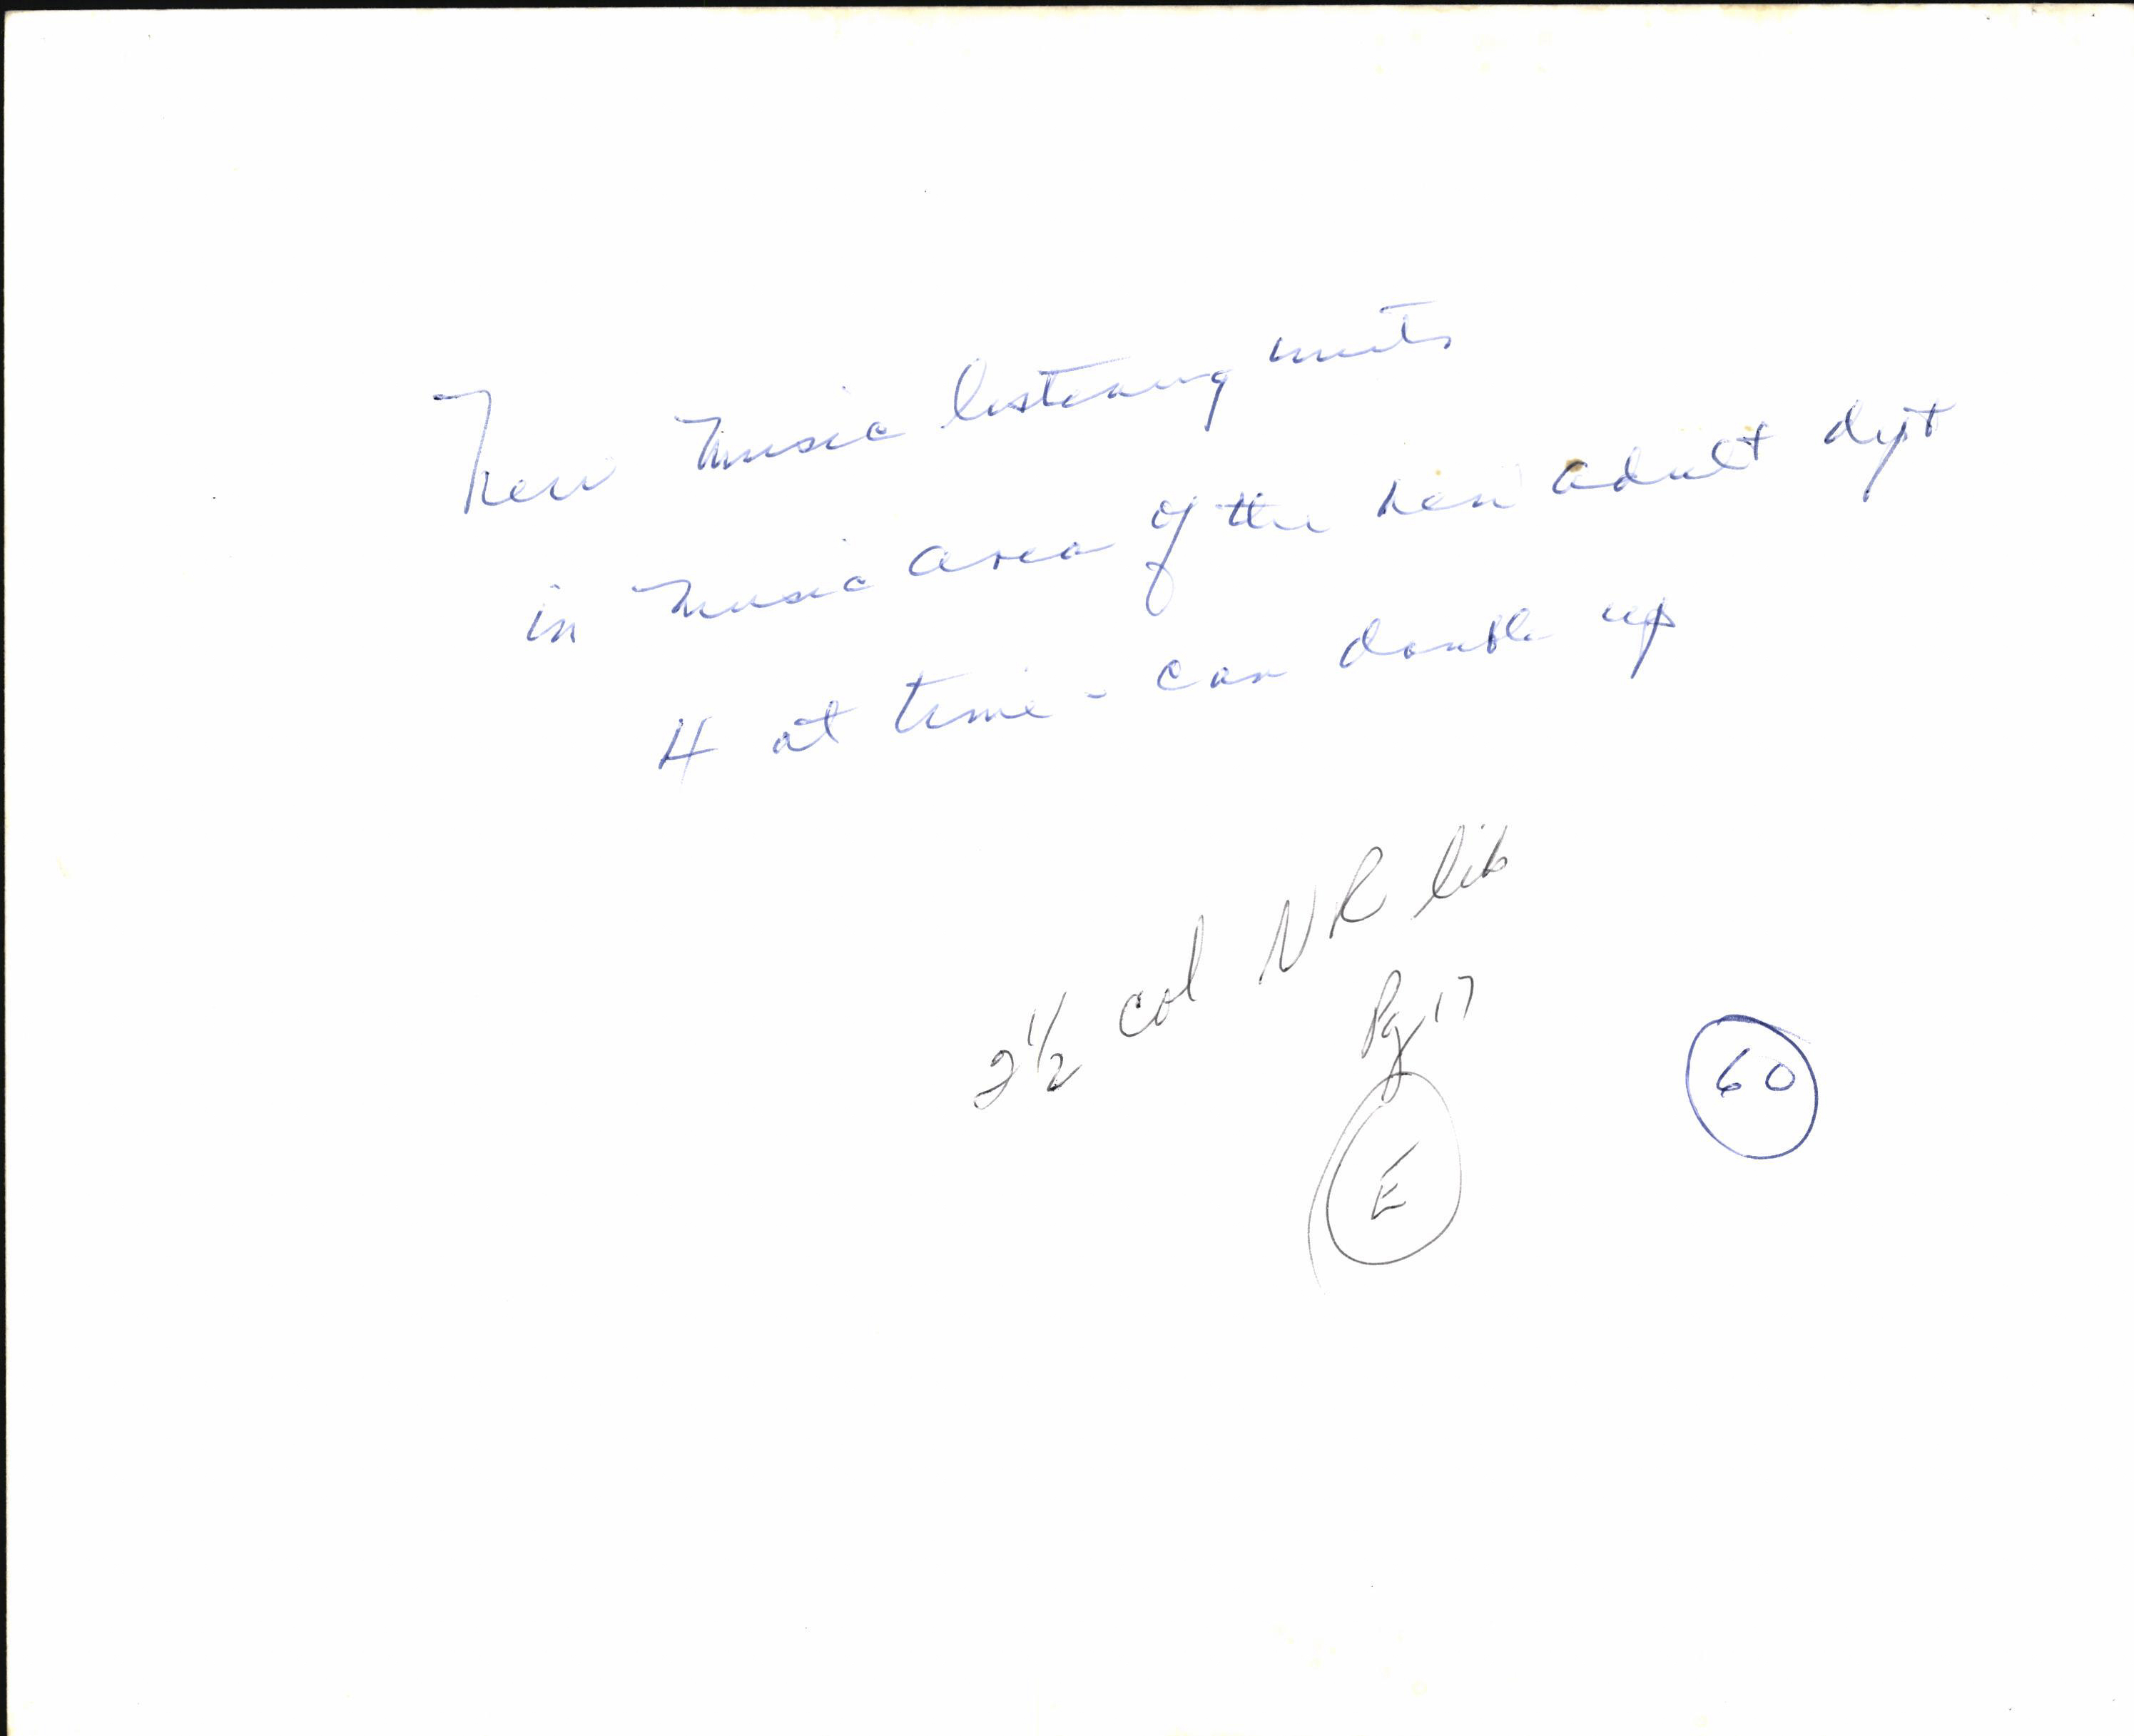 New Music listening units
in Music area of the new adult dept
4 at time - can double up
2 1/2 col NR lib
Pg 17
E
60